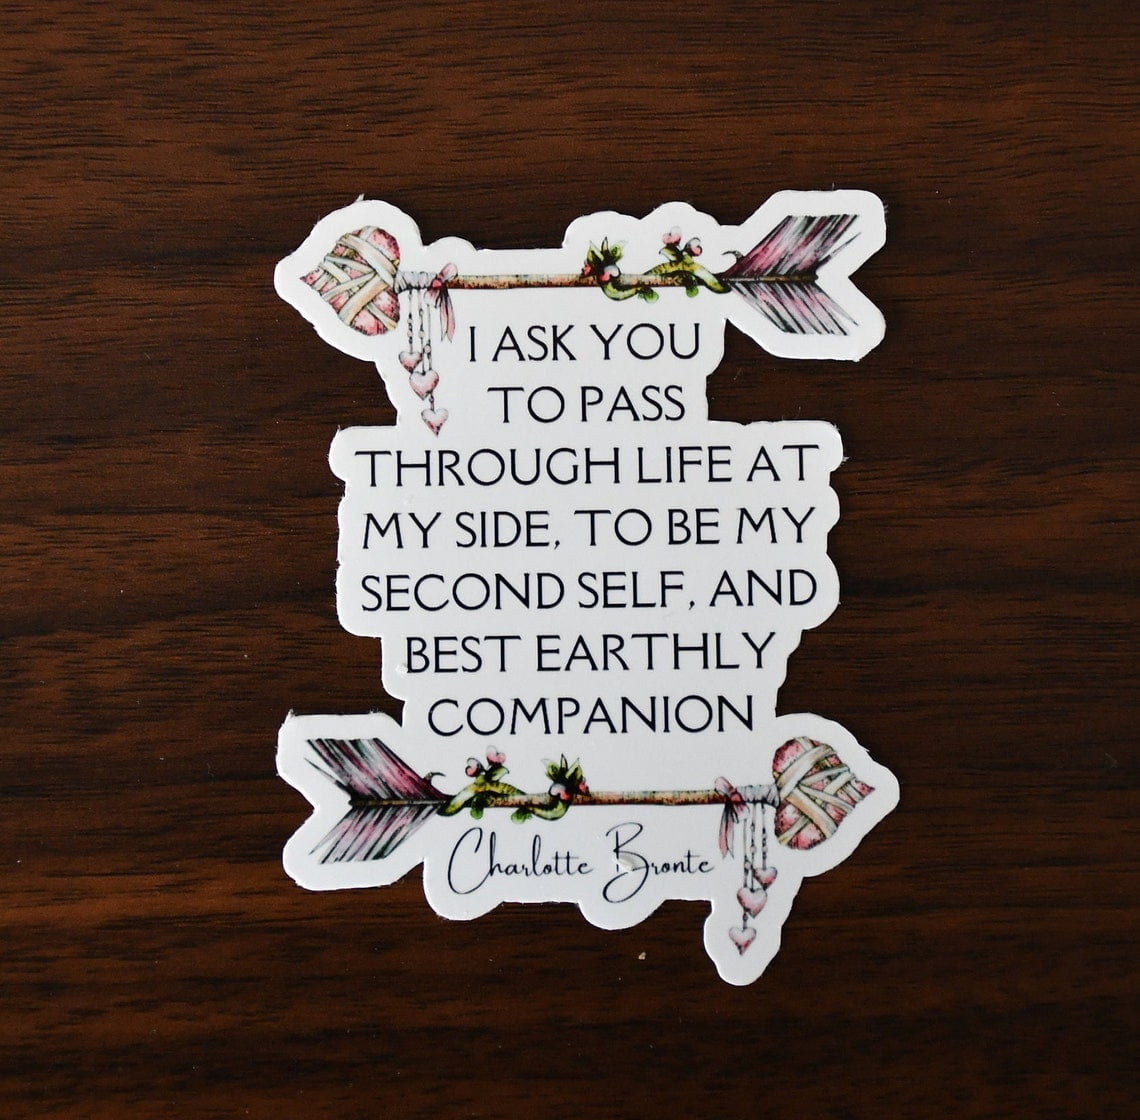 I ASK YOU
TO PASS
THROUGH LIFE AT
MY SIDE, TO BE MY
SECOND SELF, AND
BEST EARTHLY
COMPANION
Charlotte Bronte